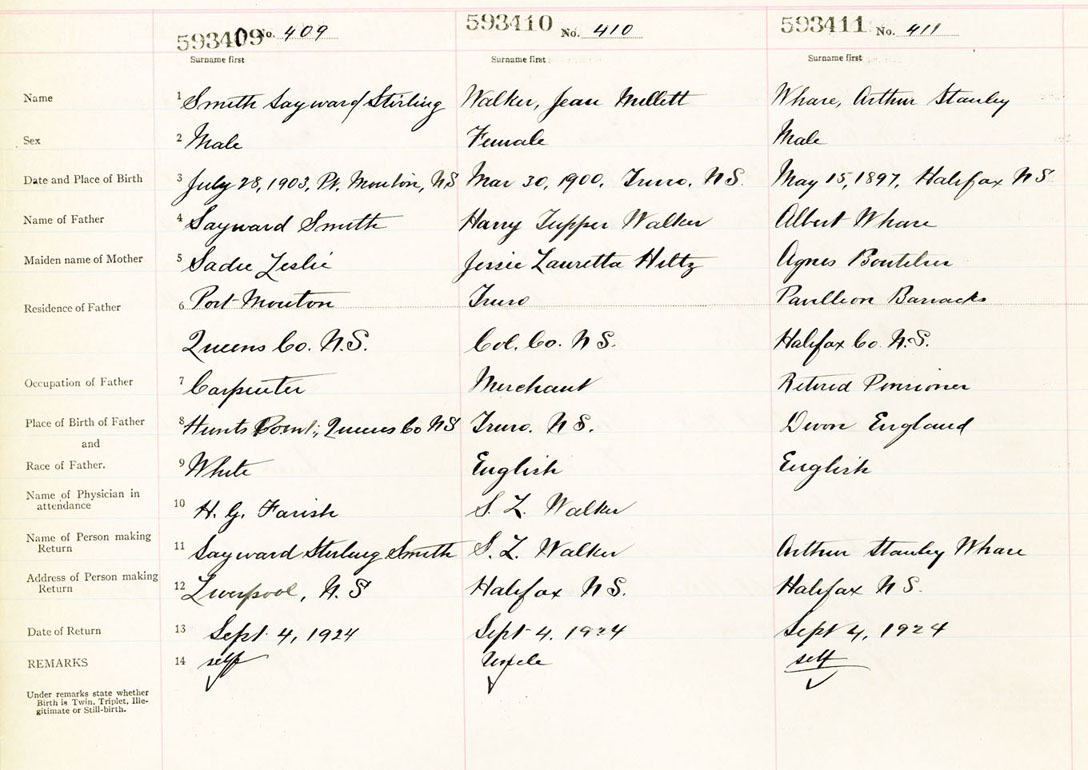 593409 No. 409 593410 No. 410 593411 No. 411
Surname first Surname first Surname first
Name 1 Smith Sayward Stirling Walker, Jean Mellett Whare, Arthur Stanley
Sex 2 Male Female Male
Date and Place of Birth 3 July 28, 1903, Pt. Mouton, N.S Mar 30, 1900, Truro, N.S. May 15, 1897, Halifax N S
Name of Father 4 Sayward Smith Harry Tupper Walker Albert Whare
Maiden name of Mother 5 Sadie Leslie Jessie Lauretta Hiltz Agnes Boutelier
Residence of Father 6 Port Mouton Truro Pavillion Barracks
Queens Co. N.S. Col. Co. N S. Halifax Co. N.S.
Occupation of Father 7 Carpenter Merchant Retired Pensioner
Place of Birth of Father 8 Hunts Point, Queens Co NS Truro. N S. Devon England
and
Race of Father. 9 White English English
Name of Physician in
attendance 10 H. G. Farish S. L. Walker
Name of Person making
Return 11 Sayward Stirling Smith S. L. Walker Arthur Stanley Whare
Address of Person making
Return 12 Liverpool, N.S Halifax N S. Halifax N S.
Date of Return 13 Sept. 4, 1924 Sept 4, 1924 Sept 4, 1924
REMARKS 14 self Uncle self
Under remarks state whether
Birth is Twin, Triplet, Ille-
gitimate or Still-birth.